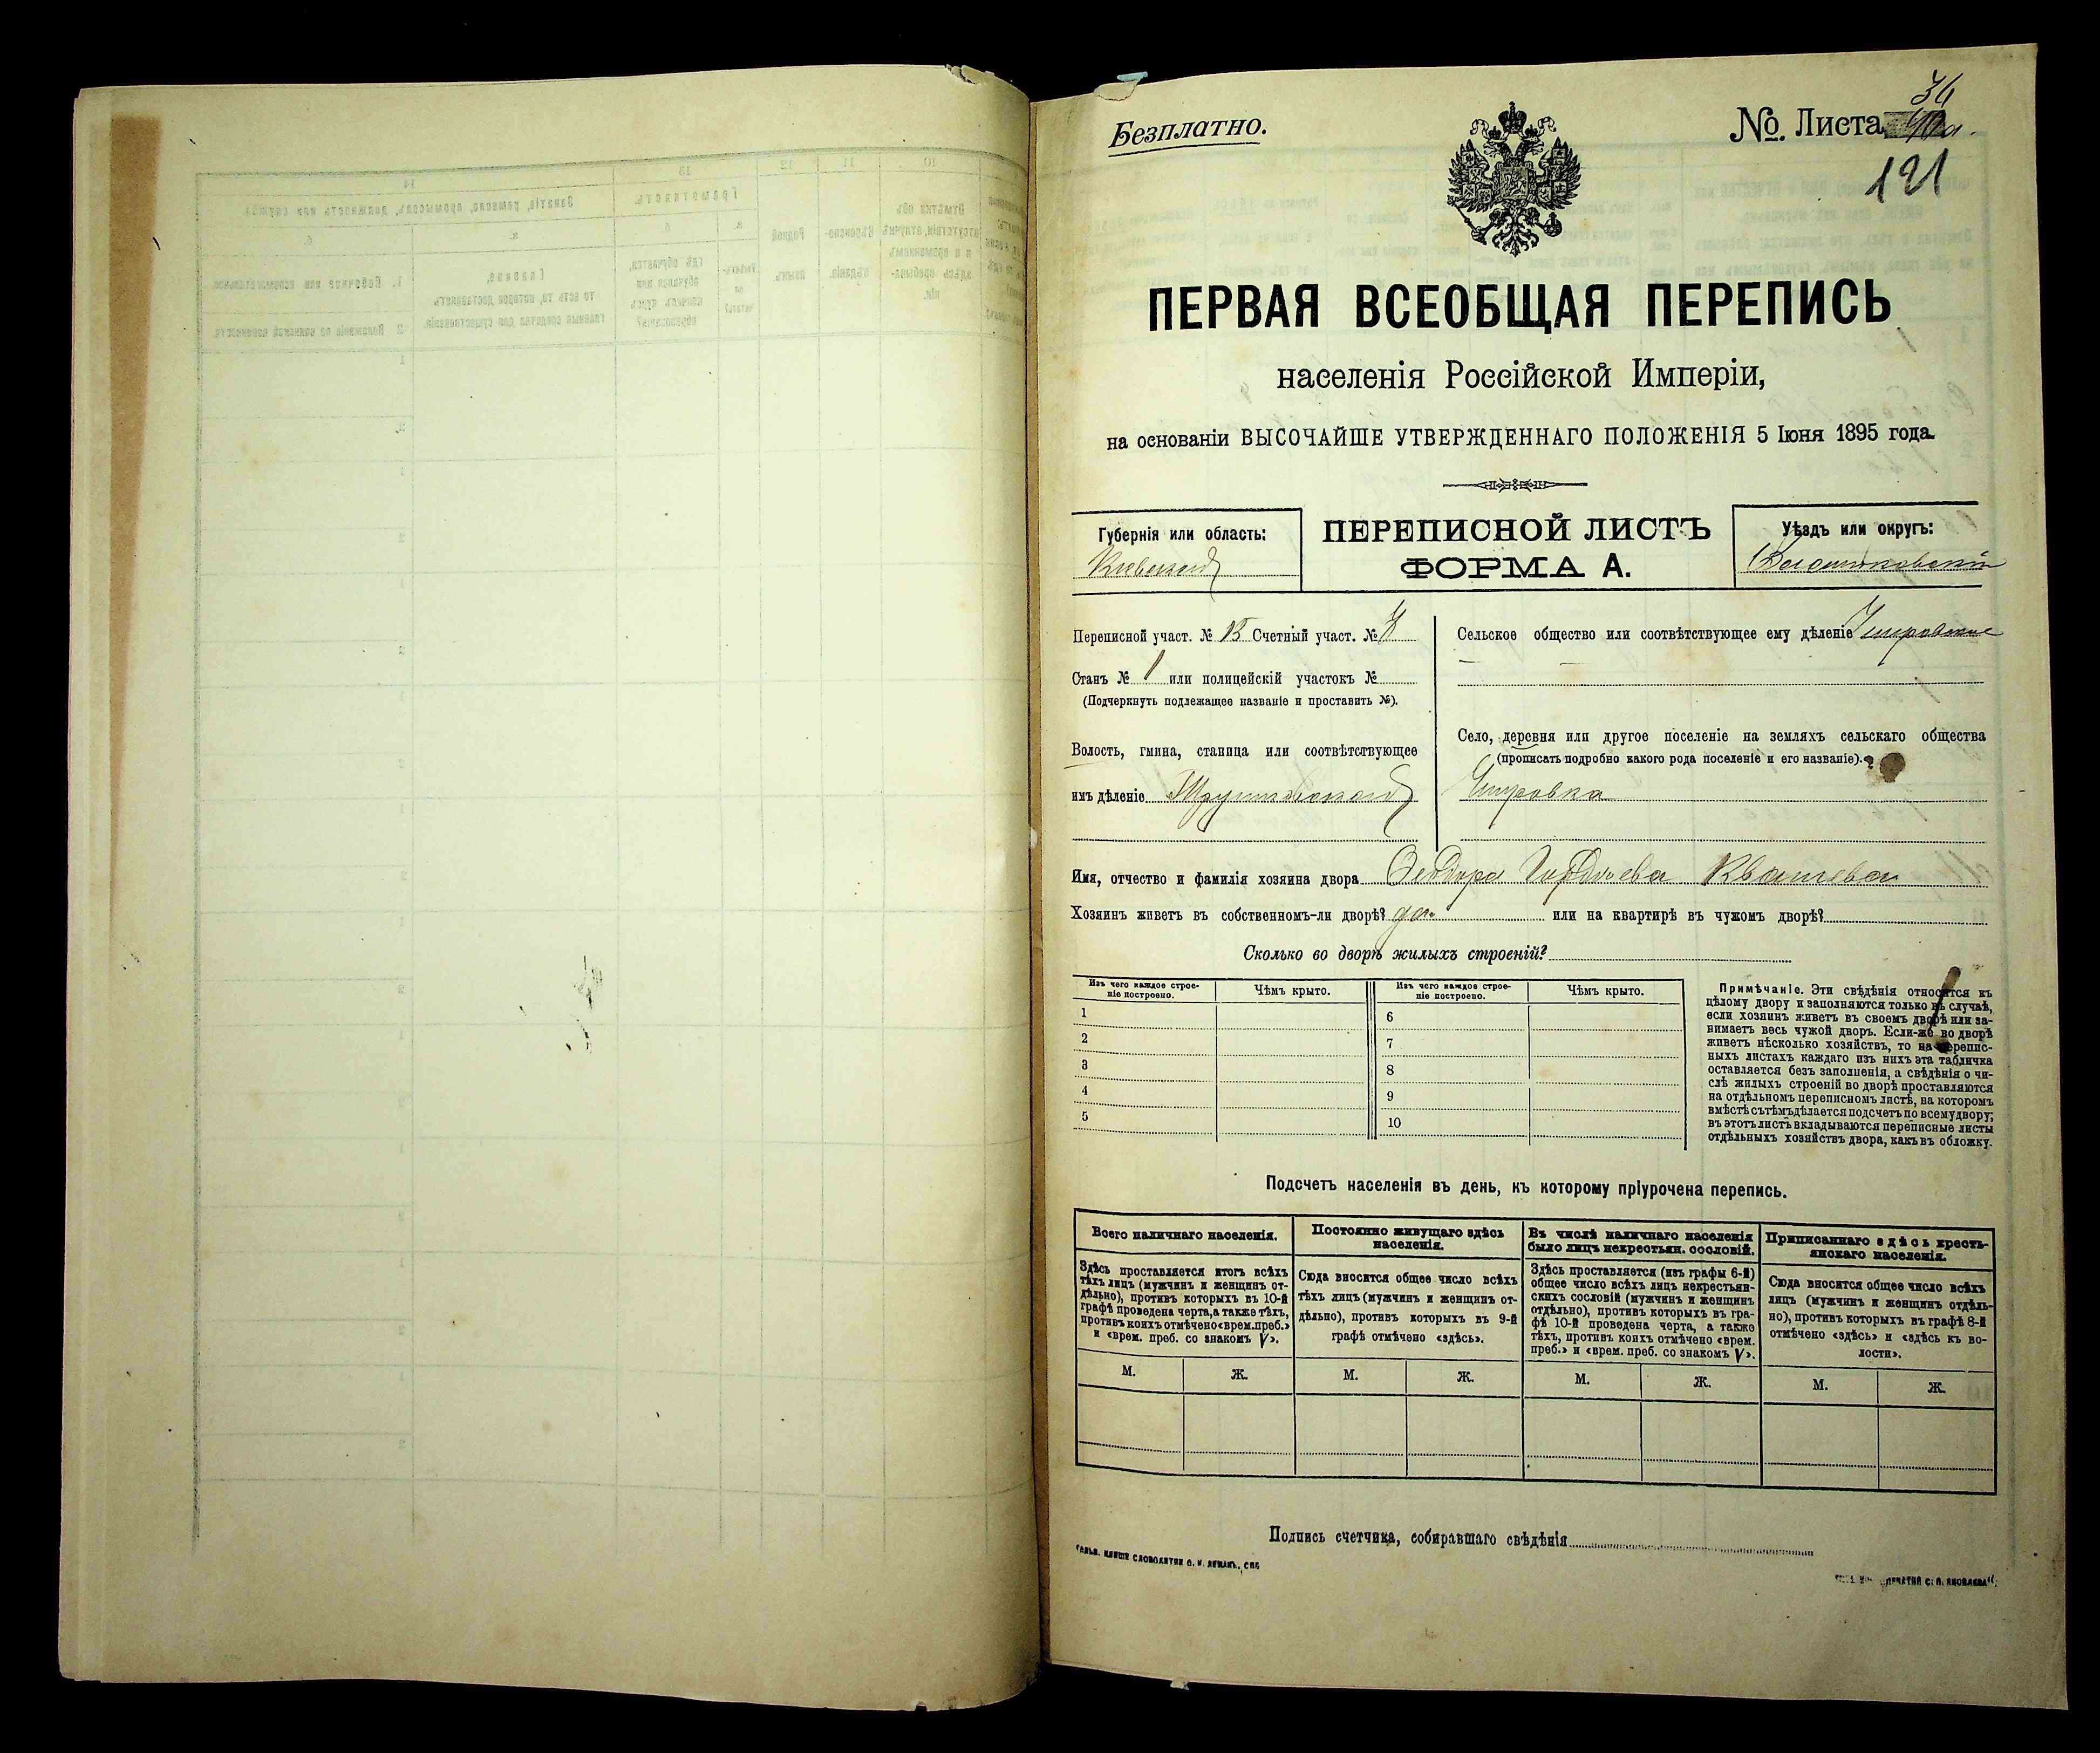 Безплатно.
№ Листа
34
121
ПЕРВАЯ ВСЕОБЩАЯ ПЕРЕПИСЬ
населенія Россійской Имперіи,
на основаніи ВЫСОЧАЙШЕ УТВЕРЖДЕННАГО ПОЛОЖЕНІЯ 5 Іюня 1895 года.
Губернія или область:
Кіевская
ПЕРЕПИСНОЙ ЛИСТЪ
ФОРМА А.
Уѣздъ или округъ:
Переписной участ. № 15 Счетный участ. №
Станъ № 1 или полицейскій участокъ №
(Подчеркнуть подлежащее названіе и проставить №).
Волость, гмина, станица или соотвѣтствующее
имъ дѣленіе
Сельское общество или соотвѣтствующее ему дѣленіе
Село, деревня или другое поселеніе на земляхъ сельскаго общества
(прописать подробно какого рода поселеніе и его названіе).
Имя, отчество и фамилія хозяина двора Феодора Гордѣева
Хозяинъ живетъ въ собственномъ-ли дворѣ? да. или на квартирѣ въ чужомъ дворѣ?
Сколько во дворѣ жилыхъ строеній?
Изъ чего каждое строе-
ніе построено.
Чѣмъ крыто.
1
2
3
4
5
Изъ чего каждое строе-
ніе построено.
Чѣмъ крыто.
6
7
8
9
10
Примѣчаніе. Эти свѣдѣнія относятся къ
цѣлому двору и заполняются только въ случаѣ,
если хозяинъ живетъ въ своемъ дворѣ или за-
нимаетъ весь чужой дворъ. Если-же во дворѣ
живетъ нѣсколько хозяйствъ, то на перепис-
ныхъ листахъ каждаго изъ нихъ эта табличка
оставляется безъ заполненія, а свѣдѣнія о чи-
слѣ жилыхъ строеній во дворѣ проставляются
на отдѣльномъ переписномъ листѣ, на которомъ
вмѣстѣ съ тѣмъ дѣлается подсчетъ по всему двору;
въ этотъ листъ вкладываются переписные листы
отдѣльныхъ хозяйствъ двора, какъ въ обложку.
Подсчетъ населенія въ день, къ которому пріурочена перепись.
Всего наличнаго населенія.
Здѣсь проставляется итогъ всѣхъ
тѣхъ лицъ (мужчинъ и женщинъ от-
дѣльно), противъ которыхъ въ 10-й
графѣ проведена черта, а также тѣхъ,
противъ коихъ отмѣчено «врем. преб.»
и «врем. преб. со знакомъ V».
М. Ж.
Постоянно живущаго здѣсь
населенія.
Сюда вносится общее число всѣхъ
тѣхъ лицъ (мужчинъ и женщинъ от-
дѣльно), противъ которыхъ въ 9-й
графѣ отмѣчено «здѣсь».
М. Ж.
Въ числѣ наличнаго населенія
было лицъ некрестьян. сословій.
Здѣсь проставляется (изъ графы 6-й)
общее число всѣхъ лицъ некрестьян-
скихъ сословій (мужчинъ и женщинъ
отдѣльно), противъ которыхъ въ гра-
фѣ 10-й проведена черта, а также
тѣхъ, противъ коихъ отмѣчено «врем.
преб.» и «врем. преб. со знакомъ V».
М. Ж.
Приписаннаго здѣсь кресть-
янскаго населенія.
Сюда вносится общее число всѣхъ
лицъ (мужчинъ и женщинъ отдѣль-
но), противъ которыхъ въ графѣ 8-й
отмѣчено «здѣсь» и «здѣсь къ во-
лости».
М. Ж.
Подпись счетчика, собиравшаго свѣдѣнія